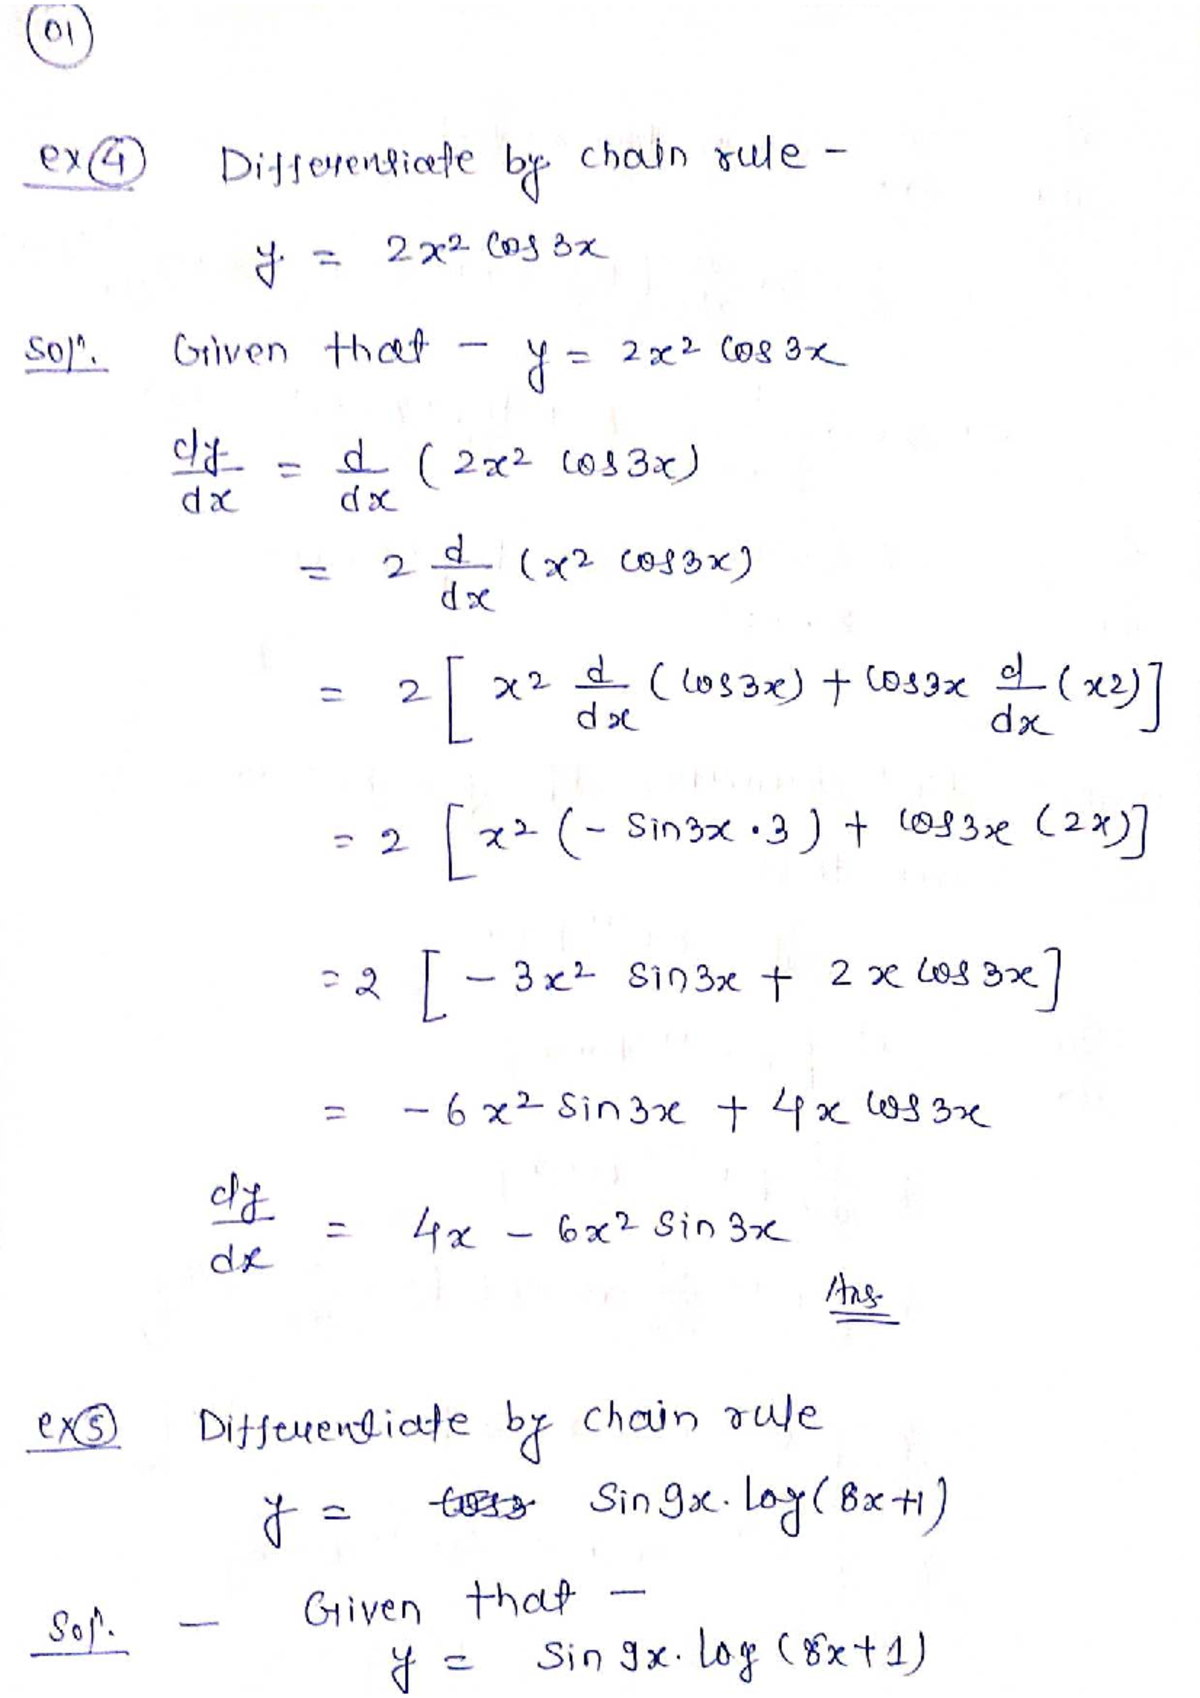 01
ex 4 Differentiate by chain rule -
y = 2x² cos 3x
Solⁿ. Given that - y = 2x² cos 3x
dy/dx = d/dx ( 2x² cos3x)
= 2 d/dx (x² cos3x)
= 2 [ x² d/dx ( cos3x) + cos3x d/dx (x2)]
= 2 [ x² (- sin3x · 3 ) + cos3x (2x)]
= 2 [ - 3x² sin3x + 2x cos 3x]
= - 6x² sin3x + 4x cos 3x
dy/dx = 4x - 6x² sin 3x
Ans.
ex 5 Differentiate by chain rule
y = sin 9x. log( 8x+1)
Solⁿ. - Given that -
y = sin 9x. log (8x+1)